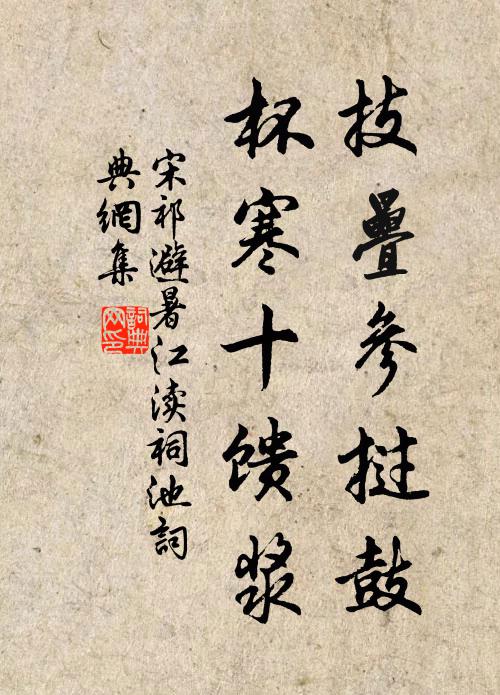 技疊參撾鼓
杯寒十馈漿
宋祁避暑江渎祠池詞
典網集
詞典网印